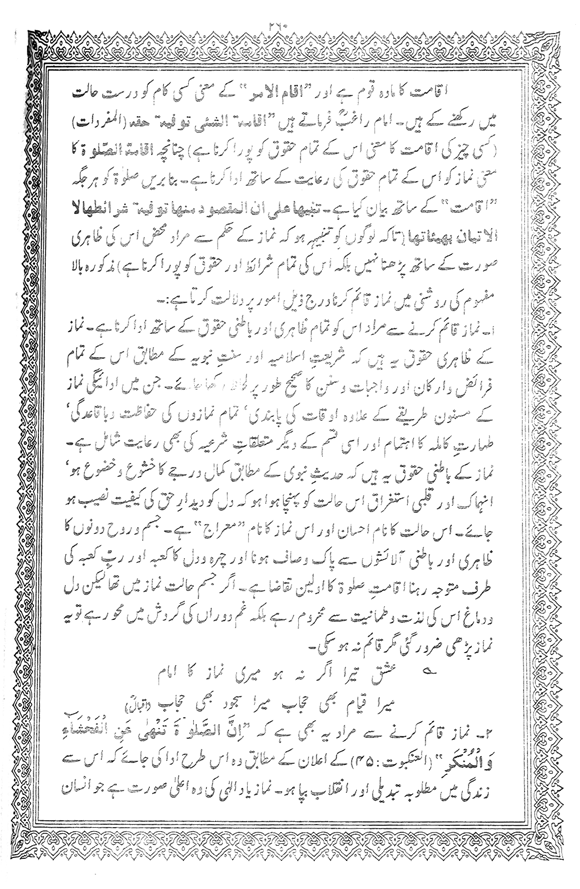 ۲۶۰
اقامت کا مادہ قوم ہے اور ”اقام الامر“ کے معنی کسی کام کو درست حالت
میں رکھنے کے ہیں۔ امام راغبؒ فرماتے ہیں ”اقامۃ الشئی توفیۃ حقہ (المفردات)
(کسی چیز کی اقامت کا معنی اس کے تمام حقوق کو پورا کرنا ہے) چنانچہ اقامۃ الصّلوٰۃ کا
معنی نماز کو اس کے تمام حقوق کی رعایت کے ساتھ ادا کرنا ہے۔ بنا بریں صلوٰۃ کو ہر جگہ
”اقامت“ کے ساتھ بیان کیا ہے۔ تنبیھا علی ان المقصود منھا توفیۃ شرائطھا لا
الاتیان بھیئاتھا (تاکہ لوگوں کو تنبیہ ہو کہ نماز کے حکم سے مراد محض اس کی ظاہری
صورت کے ساتھ پڑھنا نہیں بلکہ اس کی تمام شرائط اور حقوق کو پورا کرنا ہے) مذکورہ بالا
مفہوم کی روشنی میں نماز قائم کرنا درج ذیل امور پر دلالت کرتا ہے:۔
۱۔ نماز قائم کرنے سے مراد اس کو تمام ظاہری اور باطنی حقوق کے ساتھ ادا کرنا ہے۔ نماز
کے ظاہری حقوق یہ ہیں کہ شریعتِ اسلامیہ اور سنتِ نبویہ کے مطابق اس کے تمام
فرائض و ارکان اور واجبات و سنن کا صحیح طور پر لحاظ رکھا جائے۔ جن میں ادائیگی نماز
کے مسنون طریقے کے علاوہ اوقات کی پابندی‘ تمام نمازوں کی حفاظت و باقاعدگی‘
طہارتِ کاملہ کا اہتمام اور اسی قسم کے دیگر متعلقاتِ شرعیہ کی بھی رعایت شامل ہے۔
نماز کے باطنی حقوق یہ ہیں کہ حدیثِ نبوی کے مطابق کمال درجے کا خشوع و خضوع ہو‘
انہماک اور قلبی استغراق اس حالت کو پہنچا ہوا ہو کہ دل کو دیدارِ حق کی کیفیت نصیب ہو
جائے۔ اس حالت کا نام احسان اور اس نماز کا نام ”معراج“ ہے۔ جسم و روح دونوں کا
ظاہری اور باطنی آلائشوں سے پاک و صاف ہونا اور چہرہ و دل کا کعبہ اور ربِّ کعبہ کی
طرف متوجہ رہنا اقامتِ صلوٰۃ کا اولین تقاضا ہے۔ اگر جسم حالت نماز میں تھا لیکن دل
و دماغ اس کی لذت و طمانیت سے محروم رہے بلکہ غم دوراں کی گردش میں محو رہے تو یہ
نماز پڑھی ضرور گئی مگر قائم نہ ہو سکی۔
؂ عشق تیرا اگر نہ ہو میری نماز کا امام
میرا قیام بھی حجاب میرا سجود بھی حجاب (اقبالؒ)
۲۔ نماز قائم کرنے سے مراد یہ بھی ہے کہ ”اِنَّ الصَّلٰوۃَ تَنْھٰی عَنِ الْفَحْشَآءِ
وَالْمُنْکَرِ“ (العنکبوت : ۴۵) کے اعلان کے مطابق وہ اس طرح ادا کی جائے کہ اس سے
زندگی میں مطلوبہ تبدیلی اور انقلاب بپا ہو۔ نماز یادِ الٰہی کی وہ اعلیٰ صورت ہے جو انسان